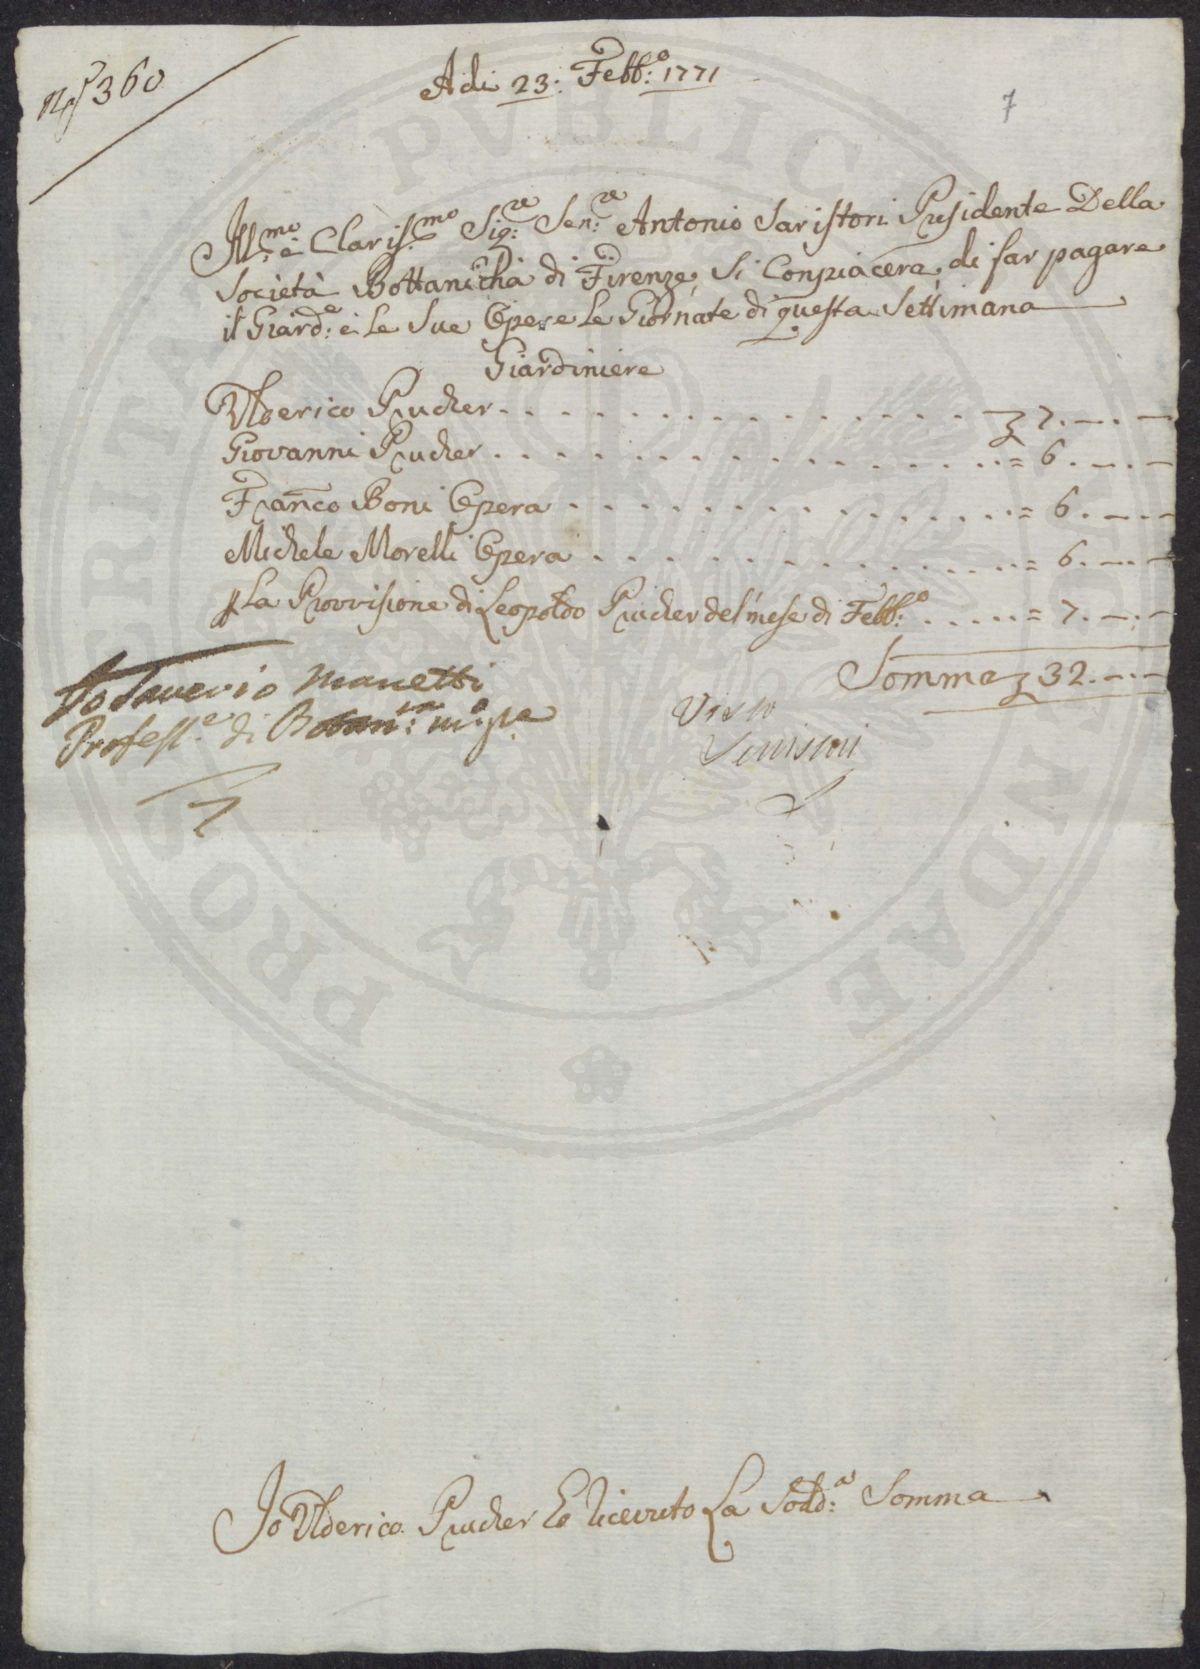 360
7
Adi 23: Febb:o 1771
Ill:mo è Claris:mo Sig:re Sen:re Antonio Saristori Presidente Della
Società Bottanicha di Firenze, Si Conpiacera, di far pagare
il Giard:e è Le Sue Opere Le Giornate di questa Settimana
Giardiniere
Ulderico Prucher . . . . 7. — . —
Giovanni Prucher . . . . = 6. — . —
Franco Boni Opera . . . . = 6. — . —
Michele Morelli Opera . . . . = 6. — . —
La Provisione di Leopoldo Prucher del mese di Febb:o . . . . . = 7. — . —
Somma 32. — . —
Io Saverio Manetti
Profess:e di Botan:ca
Visto
Io Ulderico Prucher ò riceuto La Sodd:a Somma
PROSPERITATI PVBLICAE AVGENDAE